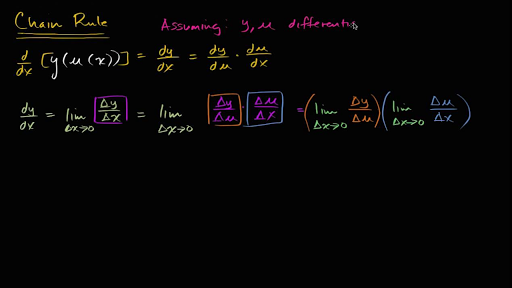 Chain Rule
Assuming: y, u differentia
d/dx [y(u(x))] = dy/dx = dy/du · du/dx
dy/dx = lim Δx→0 Δy/Δx = lim Δx→0 Δy/Δu · Δu/Δx = (lim Δx→0 Δy/Δu)(lim Δx→0 Δu/Δx)